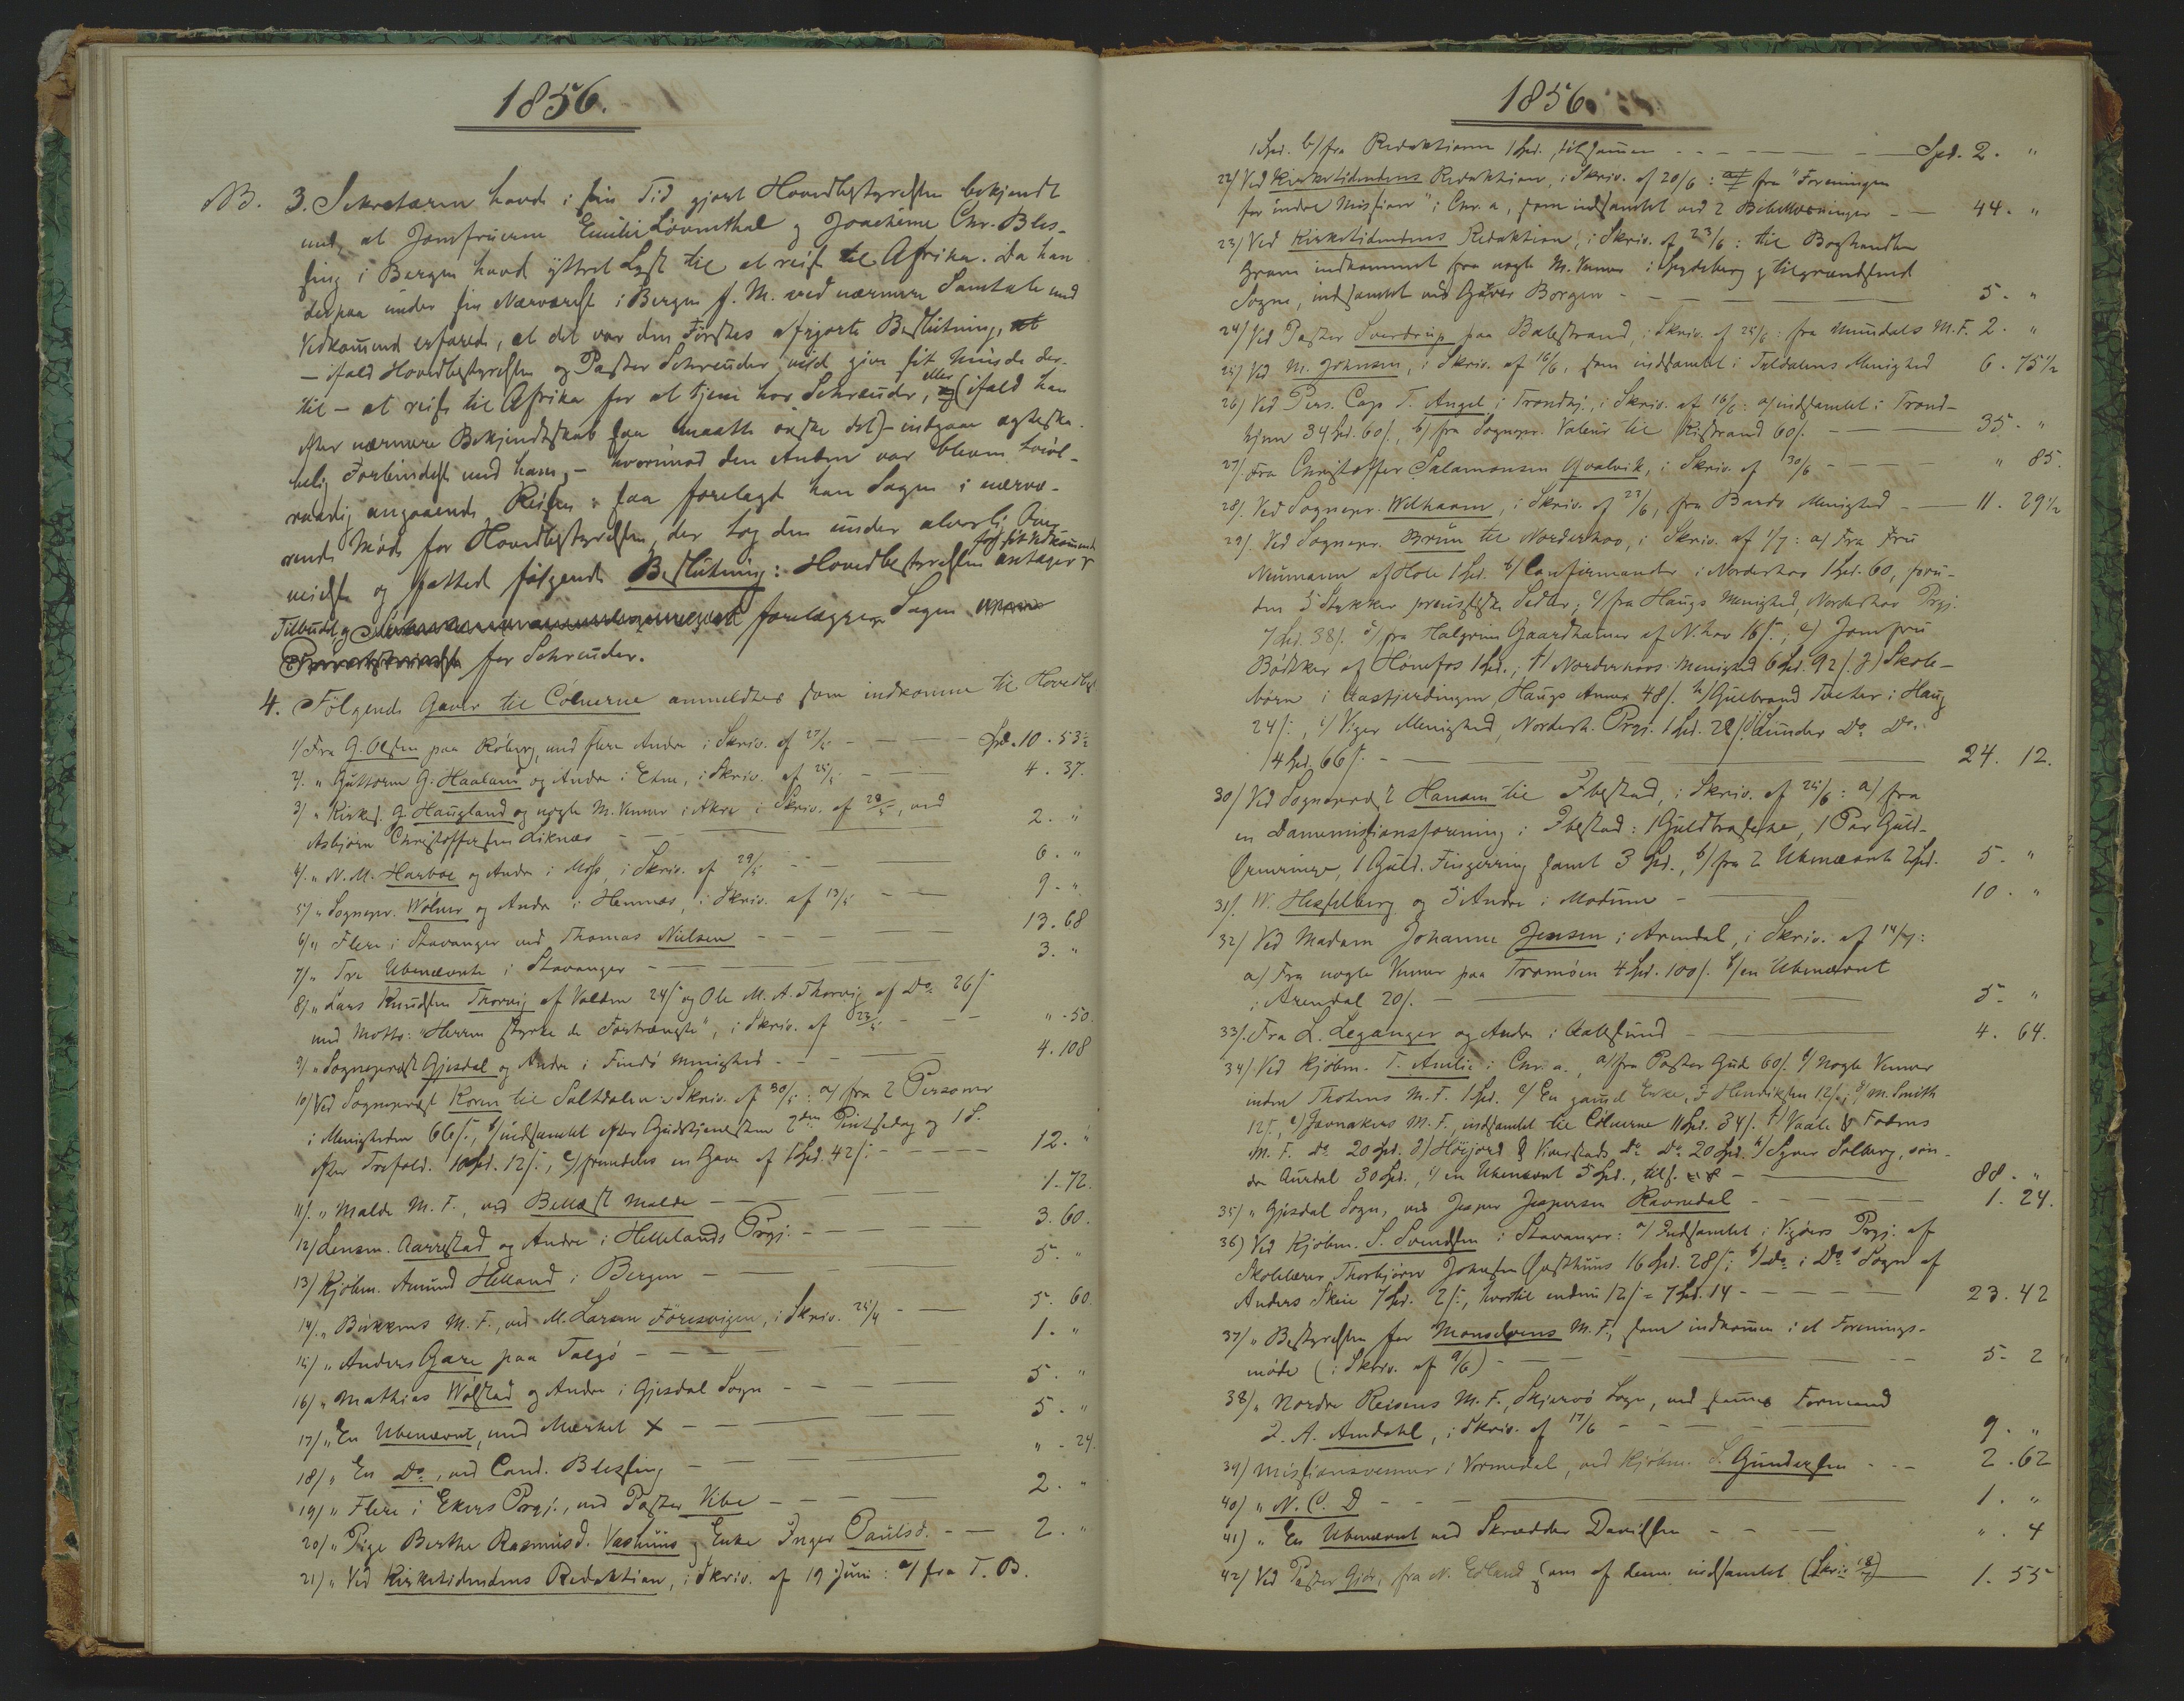 1856.
NB. 3. Sekretæren havde i sin Tid gjort Hovedbestyrelsen bekjendt
med, at Jomfruerne Emilie Løventhal og Joachime Chr. Bles-
sing i Bergen havde yttret Lyst til at reise til Afrika. Da han
derpaa under sin Nærværelse i Bergen f. M. ved nærmere Samtale med
Vedkommende erfarede, at det var den Førstes afgjorte Beslutning,
– ifald Hovedbestyrelsen og Pastor Schreuder vilde give sit Minde der-
til – at reise til Afrika for at tjene hos Schreuder, eller (ifald han
efter nærmere Bekjendtskab saa maatte ønske det) – indgaae ægteska-
belig Forbindelse med ham, – hvorimod den Anden var bleven tvivl-
raadig angaaende Reisen: saa forelagde han Sagen i nærvæ-
rende Møde for Hovedbestyrelsen, der tog den under alvorlig Over-
veielse og fattede følgende Beslutning: Hovedbestyrelsen antager for sit Vedkommende
Tilbudet, og forelægger Sagen
for Schreuder.
4. Følgende Gaver til Cölnerne anmeldtes som indkomne til Hovedbest.
1) Fra G. Olsen paa Röberg, med flere Andre i Skriv. af 27/5 – Spd. 10 . 53½
2) " Guttorm G. Haaland og Andre i Etne, i Skriv. af 25/5 – 4 . 37.
3) " Kirkes. G. Haugland og nogle M. Venner i Akre i Skriv. af 28/5, ved
Asbjørn Christoffersen Liknæs – 2 . "
4) " N. M. Harboe og Andre i Moss, i Skriv. af 29/5 – 6 . "
5) " Sognepr. Wølner og Andre i Hemnes, i Skriv. af 13/5 – 9 . "
6) " Flere i Stavanger ved Thomas Nielsen – 13 . 68
7) " Tre Ubenævnte i Stavanger – 3 . "
8) " Lars Knudsen Thorvig af Valden 24 s og Ole M. A. Thorvig af Do 26 s
med Motto: "Herren styrke de Fortrængte", i Skriv. af 23/5 – " . 50.
9) " Sognepræst Gjesdal og Andre i Findö Menighed – 4 . 108
10) Ved Sognepræst Koren til Saltdalen i Skriv. af 30/5: a) fra 2 Personer
i Menigheden 66 s, b) indsamlet efter Gudstjenesten 2den Pintsedag og 1 S.
efter Trefold. 10 Spd. 12 s, c) fremdeles en Gave af 1 Spd. 42 s – 12 . "
11) " Malde M. F., ved Bellest Malde – 1 . 72.
12) Lensm. Aarrestad og Andre i Hellelands Prgj. – 3 . 60.
13) Kjøbm. Amund Helland i Bergen – 5 . "
14) " Bükkens M. F., ved M. Larsen Föresvigen, i Skriv. 25/4 – 5 . 60.
15) " Anders Gare paa Talgö – 1 . "
16) " Mathias Wølstad og Andre i Gjesdal Sogn – 5 . "
17) " En Ubenævnt, med Mærket X – 5 . "
18) " En Do, ved Cand. Blessing – " . 24.
19) " Flere i Ekers Prgj., ved Pastor Vibe – 2 . "
20) " Pige Berthe Rasmusd. Vashuus og Enke Inger Paulsd. – 2 . "
21) " Ved Kirketidendens Redaktion, i Skriv. af 19 Juni: a) fra T. B.
1856.
1 Spd. b) fra Redaktionen 1 Spd., tilsammen – Spd. 2 . "
22) Ved Kirketidendens Redaktion, i Skriv. af 20/6: fra "Foreningen
for indre Mission" i Chr.a, som indsamlet ved 2 Bibellæsninger – 44 . "
23) Ved Kirketidendens Redaktion, i Skriv. af 23/6: til Boghandler
Gram indkommet fra nogle M. Venner i Spydeberg og tilgrændsende
Sogne, indsamlet ved Borgen – 5 . "
24) Ved Pastor Sverdrup paa Balestrand, i Skriv. af 25/6: fra Mundals M. F. 2 . "
25) Ved M. Johnsen, i Skriv. af 16/6, som indsamlet i Tyldalens Menighed 6 . 75½
26) Ved Pers. Cap. T. Angel i Trondhj., i Skriv. af 16/6: a) indsamlet i Trond-
hjem 34 Spd. 60 s, b) fra Sognepr. Valeur til Kistrand 60 s. – 35 . "
27) Fra Christoffer Salamonsen Qvalvik, i Skriv. af 30/6 – " 85.
28) Ved Sognepr. Welhaven, i Skriv. af 27/6, fra Bards Menighed – 11 . 29½
29) Ved Sognepr. Brun til Norderhov, i Skriv. af 1/7: a) Fra Fru
Neumann af Hole 1 Spd. b) Confirmander i Norderhov 1 Spd. 60, foru-
den 5 Stykker preussiske Sedler; c) fra Haugs Menighed, Norderhov Prgj.
7 Spd. 38 s. d) fra Halgrim Gaardhamer af N.hov 16 s; e) Jomfru
Bödtker af Hönefos 1 Spd.; f) Norderhovs Menighed 6 Spd. 92 s. g) Skole-
börn i Aasfjerdingen, Haugs Annex 48 s. h) Gulbrand Tveter i Haug
24 s, i) Viger Menighed, Norderh. Prgj. 1 Spd. 28 s. Lunder Do Do
4 Spd. 66 s. – 24 . 12.
30) Ved Sogneprest Hansen til Ibestad, i Skriv. af 25/6: a) fra
en Damemissionsforening i Ibestad: 1 Guldbrosche, 1 Par Guld-
Öreringe, 1 Guld-Fingerring samt 3 Spd., b) fra 2 Ubenævnte 2 Spd. 5 . "
31) W. Hesselberg og 5 Andre i Modum – 10 . "
32) Ved Madam Johanne Jensen i Arendal, i Skriv. af 14/7:
a) Fra nogle Venner paa Tromöen 4 Spd. 100 s. b) en Ubenævnt
i Arendal 20 s. – 5 . "
33) Fra L. Leganger og Andre i Aalesund – 4 . 64.
34) Ved Kjöbm. T. Amlie i Chr.a., a) fra Pastor Gud 60 s. b) Nogle Venner
inden Thotens M. F. 1 Spd. c) En gammel Enke, F. Henriksen 12 s.; d) M. Smith
12 s., e) Jevnakers M. F., indsamlet til Cölnerne 11 Spd. 34 s. f) Vaale & Fodens
M. F. Do 20 Spd. g) Höijord & Viverstads Do Do 20 Spd. h) Syver Solberg, sön-
dr Aurdal 30 Spd., i) en Ubenævnt 5 Spd., tils. – 88 . "
35) " Gjesdal Sogn, ved Jesper Jespersen Ravnedal – 1 . 24.
36) Ved Kjöbm. S. Svendsen i Stavanger: a) Indsamlet i Vigörs Prgj. af
Skolelærer Thorbjörn Johnsen Qvasthuus 16 Spd. 28 s; b) Do i Do Sogn af
Anders Skeie 7 Spd. 2 s, hvortil endnu 12 s = 7 Spd. 14 – 23 . 42
37) " Bestyrelsen for Monselvens M. F., som indkommen i et Forenings-
möde (i Skriv. af 9/6) – 5 . 2
38) " Nordre Reisens M. F., Skjervö Sogn, ved sammes Formand
I. A. Amdahl, i Skriv. af 17/6 – 9 . "
39) Missionsvenner i Vormedal, ved Kjöbm. S. Gundersen – 2 . 62
40) " N. C. D – 1 . "
41) " En Ubenævnt ved Skrædder Davidsen – " . 4
42) Ved Pastor Gjör, fra N. Edland som af denne indsamlet (Skriv. 18/7) 1 . 55